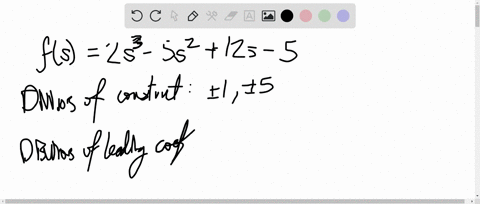 f(s) = 2s³ - 5s² + 12s - 5
Divisors of constant: ±1, ±5
Divisors of leading coef